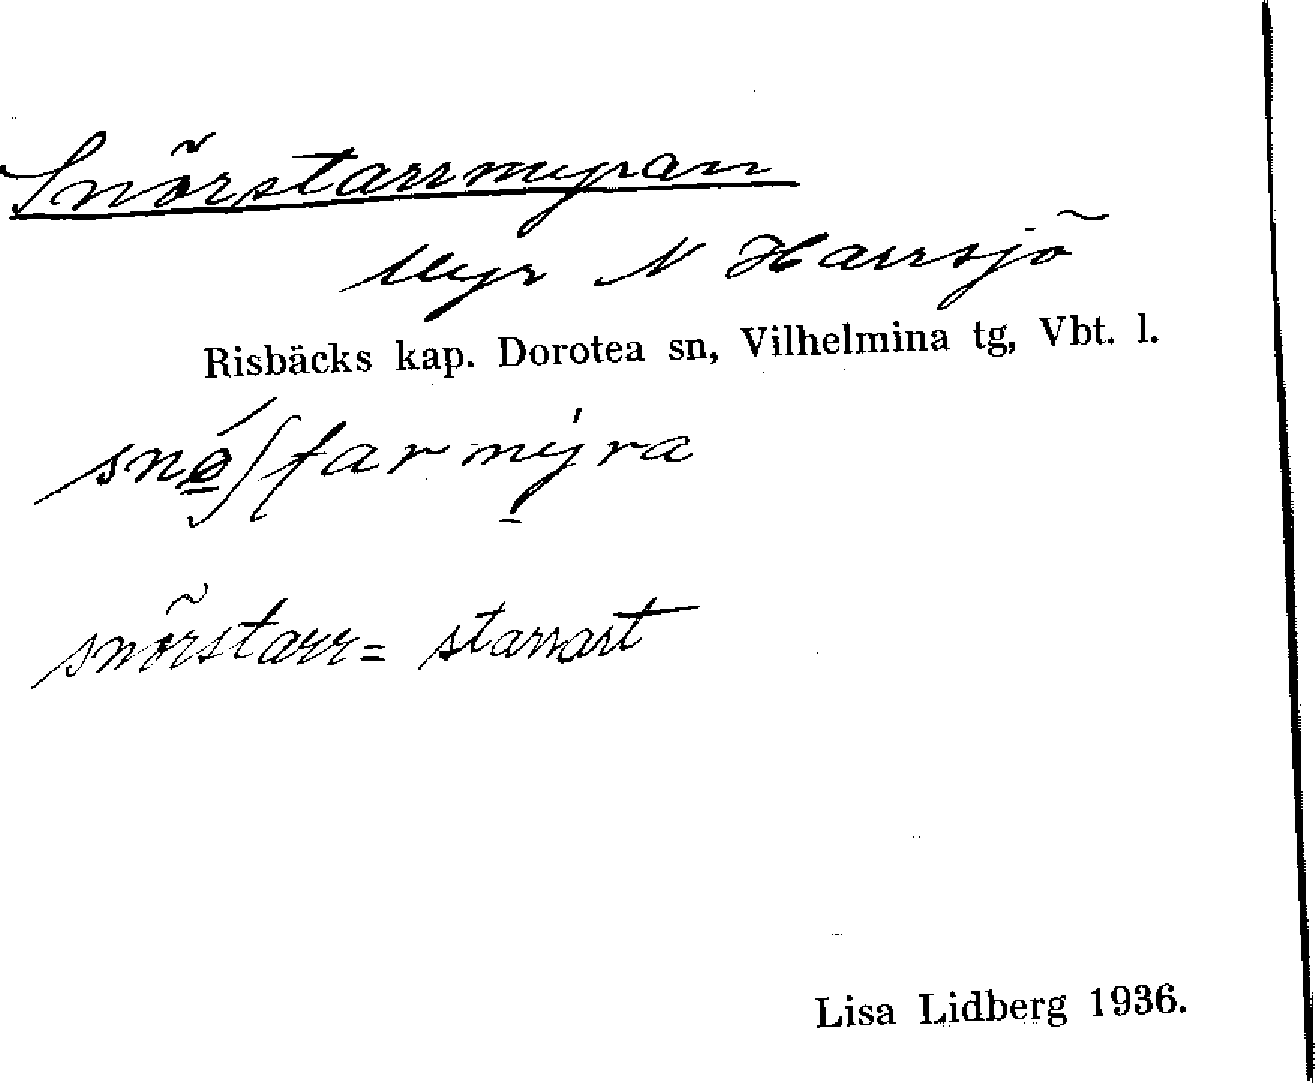 Snörstarrmyran
Myr N Harrsjö
Risbäcks kap. Dorotea sn, Vilhelmina tg, Vbt. l.
snörstarr = starrart
Lisa Lidberg 1936.